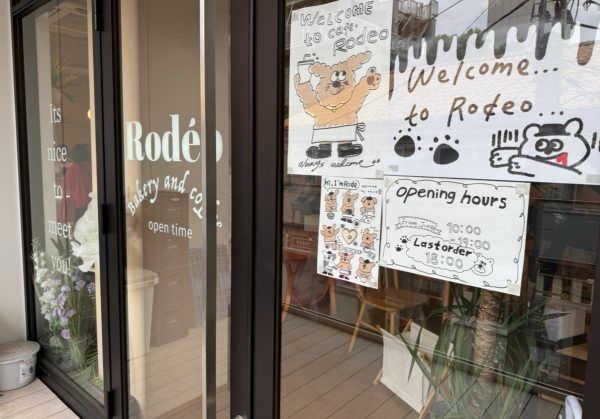 Its
nice
to
meet
you!
Rodéo
bakery and
open time
WELCOME
to cafe.
RODEO
always welcome
Welcome...
to Rodeo...
Hi, I'm Rode
opening hours
10:00
-19:00
Last order
18:00